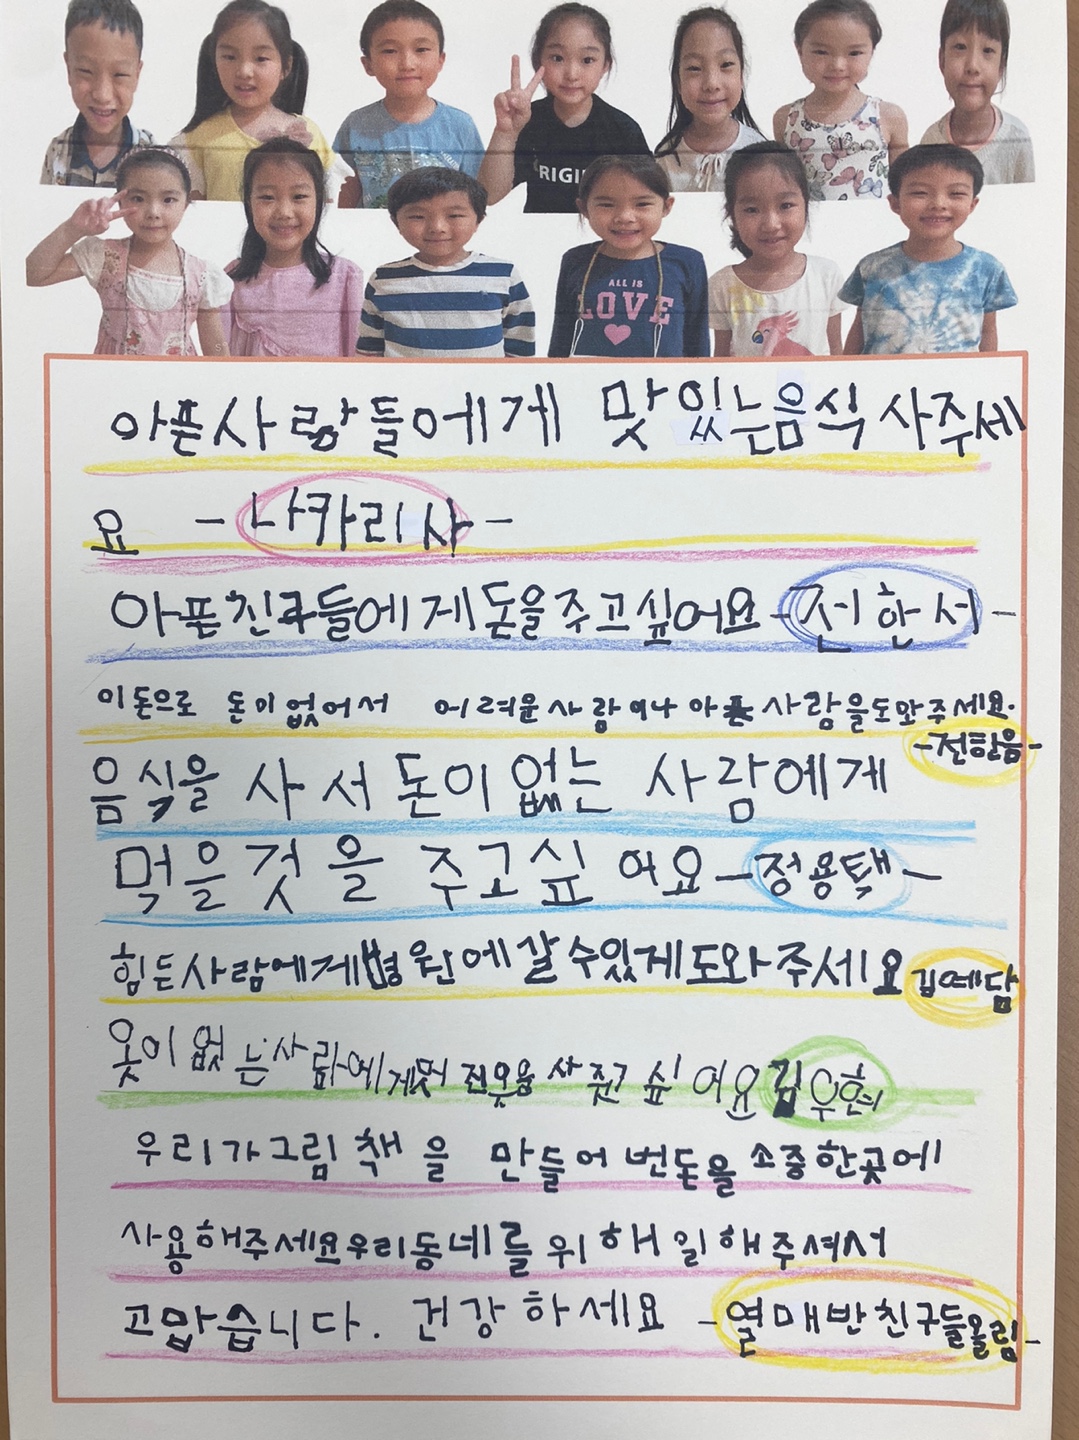 RIGI
ALL IS
LOVE
아픈사람들에게 맛있는음식 사주세
요 - 나카리사 -
아픈친구들에게돈을주고싶어요 - 전한서 -
이돈으로 돈이없어서 어려운사람이나 아픈 사람을도와주세요.
- 전한음 -
음식을 사서 돈이 없는 사람에게
먹을것을 주고싶어요 - 정용택 -
힘든사람에게병원에갈수있게도와주세요 김예담
옷이 없는사람에게 전옷을 사주고 싶어요 김우현
우리가그림책을 만들어 번돈을 소중한곳에
사용해주세요우리동네를위해일해주셔서
고맙습니다. 건강하세요 - 열매반친구들올림 -